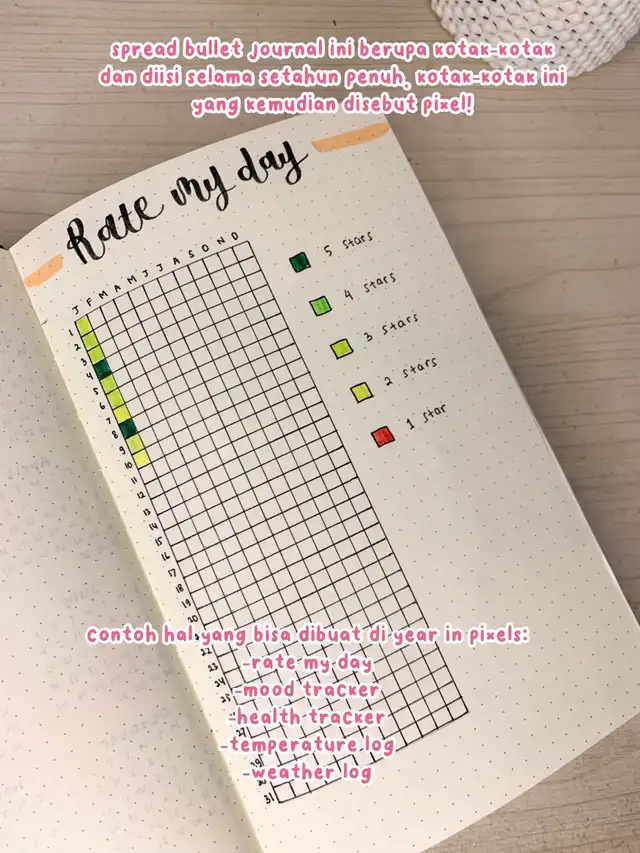 spread bullet journal ini berupa kotak-kotak
dan diisi selama setahun penuh, kotak-kotak ini
yang kemudian disebut pixel!
Rate my day
J F M A M J J A S O N D
5 stars
4 stars
3 stars
2 stars
1 star
1
2
3
4
5
6
7
8
9
10
11
12
13
14
15
16
17
18
19
20
22
23
24
25
27
29
31
contoh hal yang bisa dibuat di year in pixels:
-rate my day
-mood tracker
-health tracker
-temperature log
-weather log